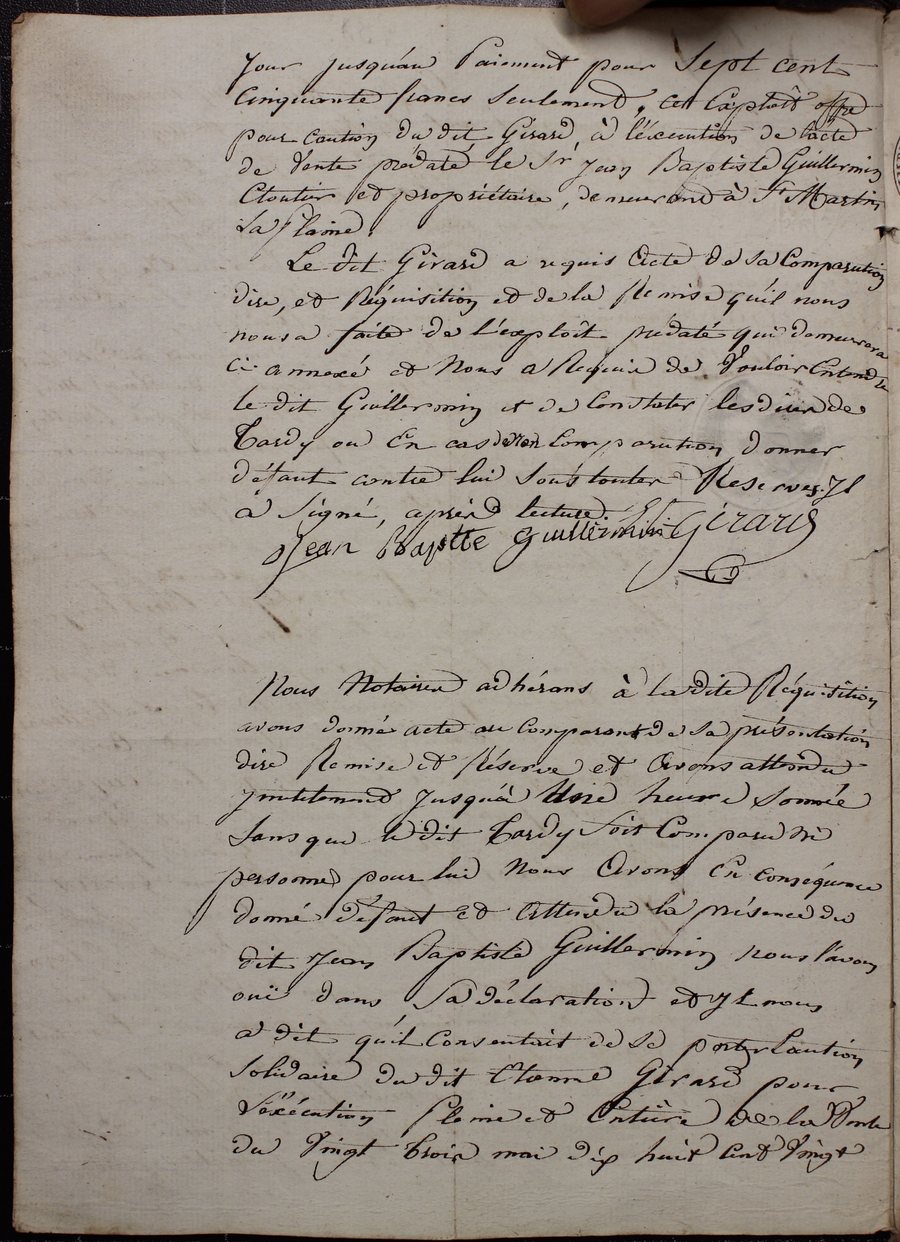 jour jusqu'au Paiement pour Sept cent
Cinquante francs Seulement, cet Exploit offre
pour caution du dit Girard, à l'éxecution de l'acte
de Vente prédaté, le Sr Jean Baptiste Guillermin
Cloutier et propriétaire, demeurand à St Martin
La plaine.
Le dit Girard a requis Acte de Sa Comparution
dire, et Réquisition et de la Remise qu'il nous
nous a faite de l'exploit prédaté qui demeurera
ci annexé et Nous a Requis de Vouloir Entendre
le dit Guillermin et de Constater les dires de
Tardy ou En cas de non Comparution, donner
défaut contre lui Sous toutes Réserves. Il
a Signé, après lecture.
Jean Baptte Guillermin Et Girard
Nous Notaires adhérans à la dite Réquisition
avons donné acte au Comparant de Sa présentation
dire Remise et Réserve et Avons attendu
jusqu'à Une heure Sonnée
Sans que le dit Tardy Soit Comparu Ni
personne pour lui Nous Avons En conséquence
donné défaut Et Attendu la présence du
dit Jean Baptiste Guillermin nous l'avons
ouï dans Sa déclaration et Il nous
a dit qu'il Consentait de Se porter Caution
Solidaire du dit Etienne Girard pour
L'éxécution Pleine et Entière de la Vente
du Vingt Trois mai dix huit Cent Vingt